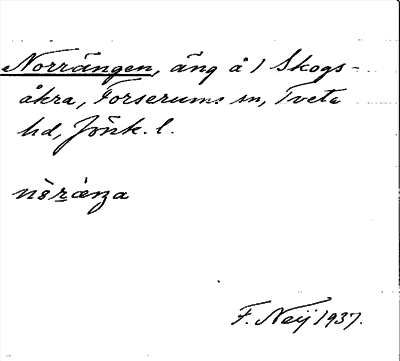 Norrängen, äng å 1 Skogs-
åkra, Forserums sn, Tveta
hd, Jönk. l.
F. Neij 1937.